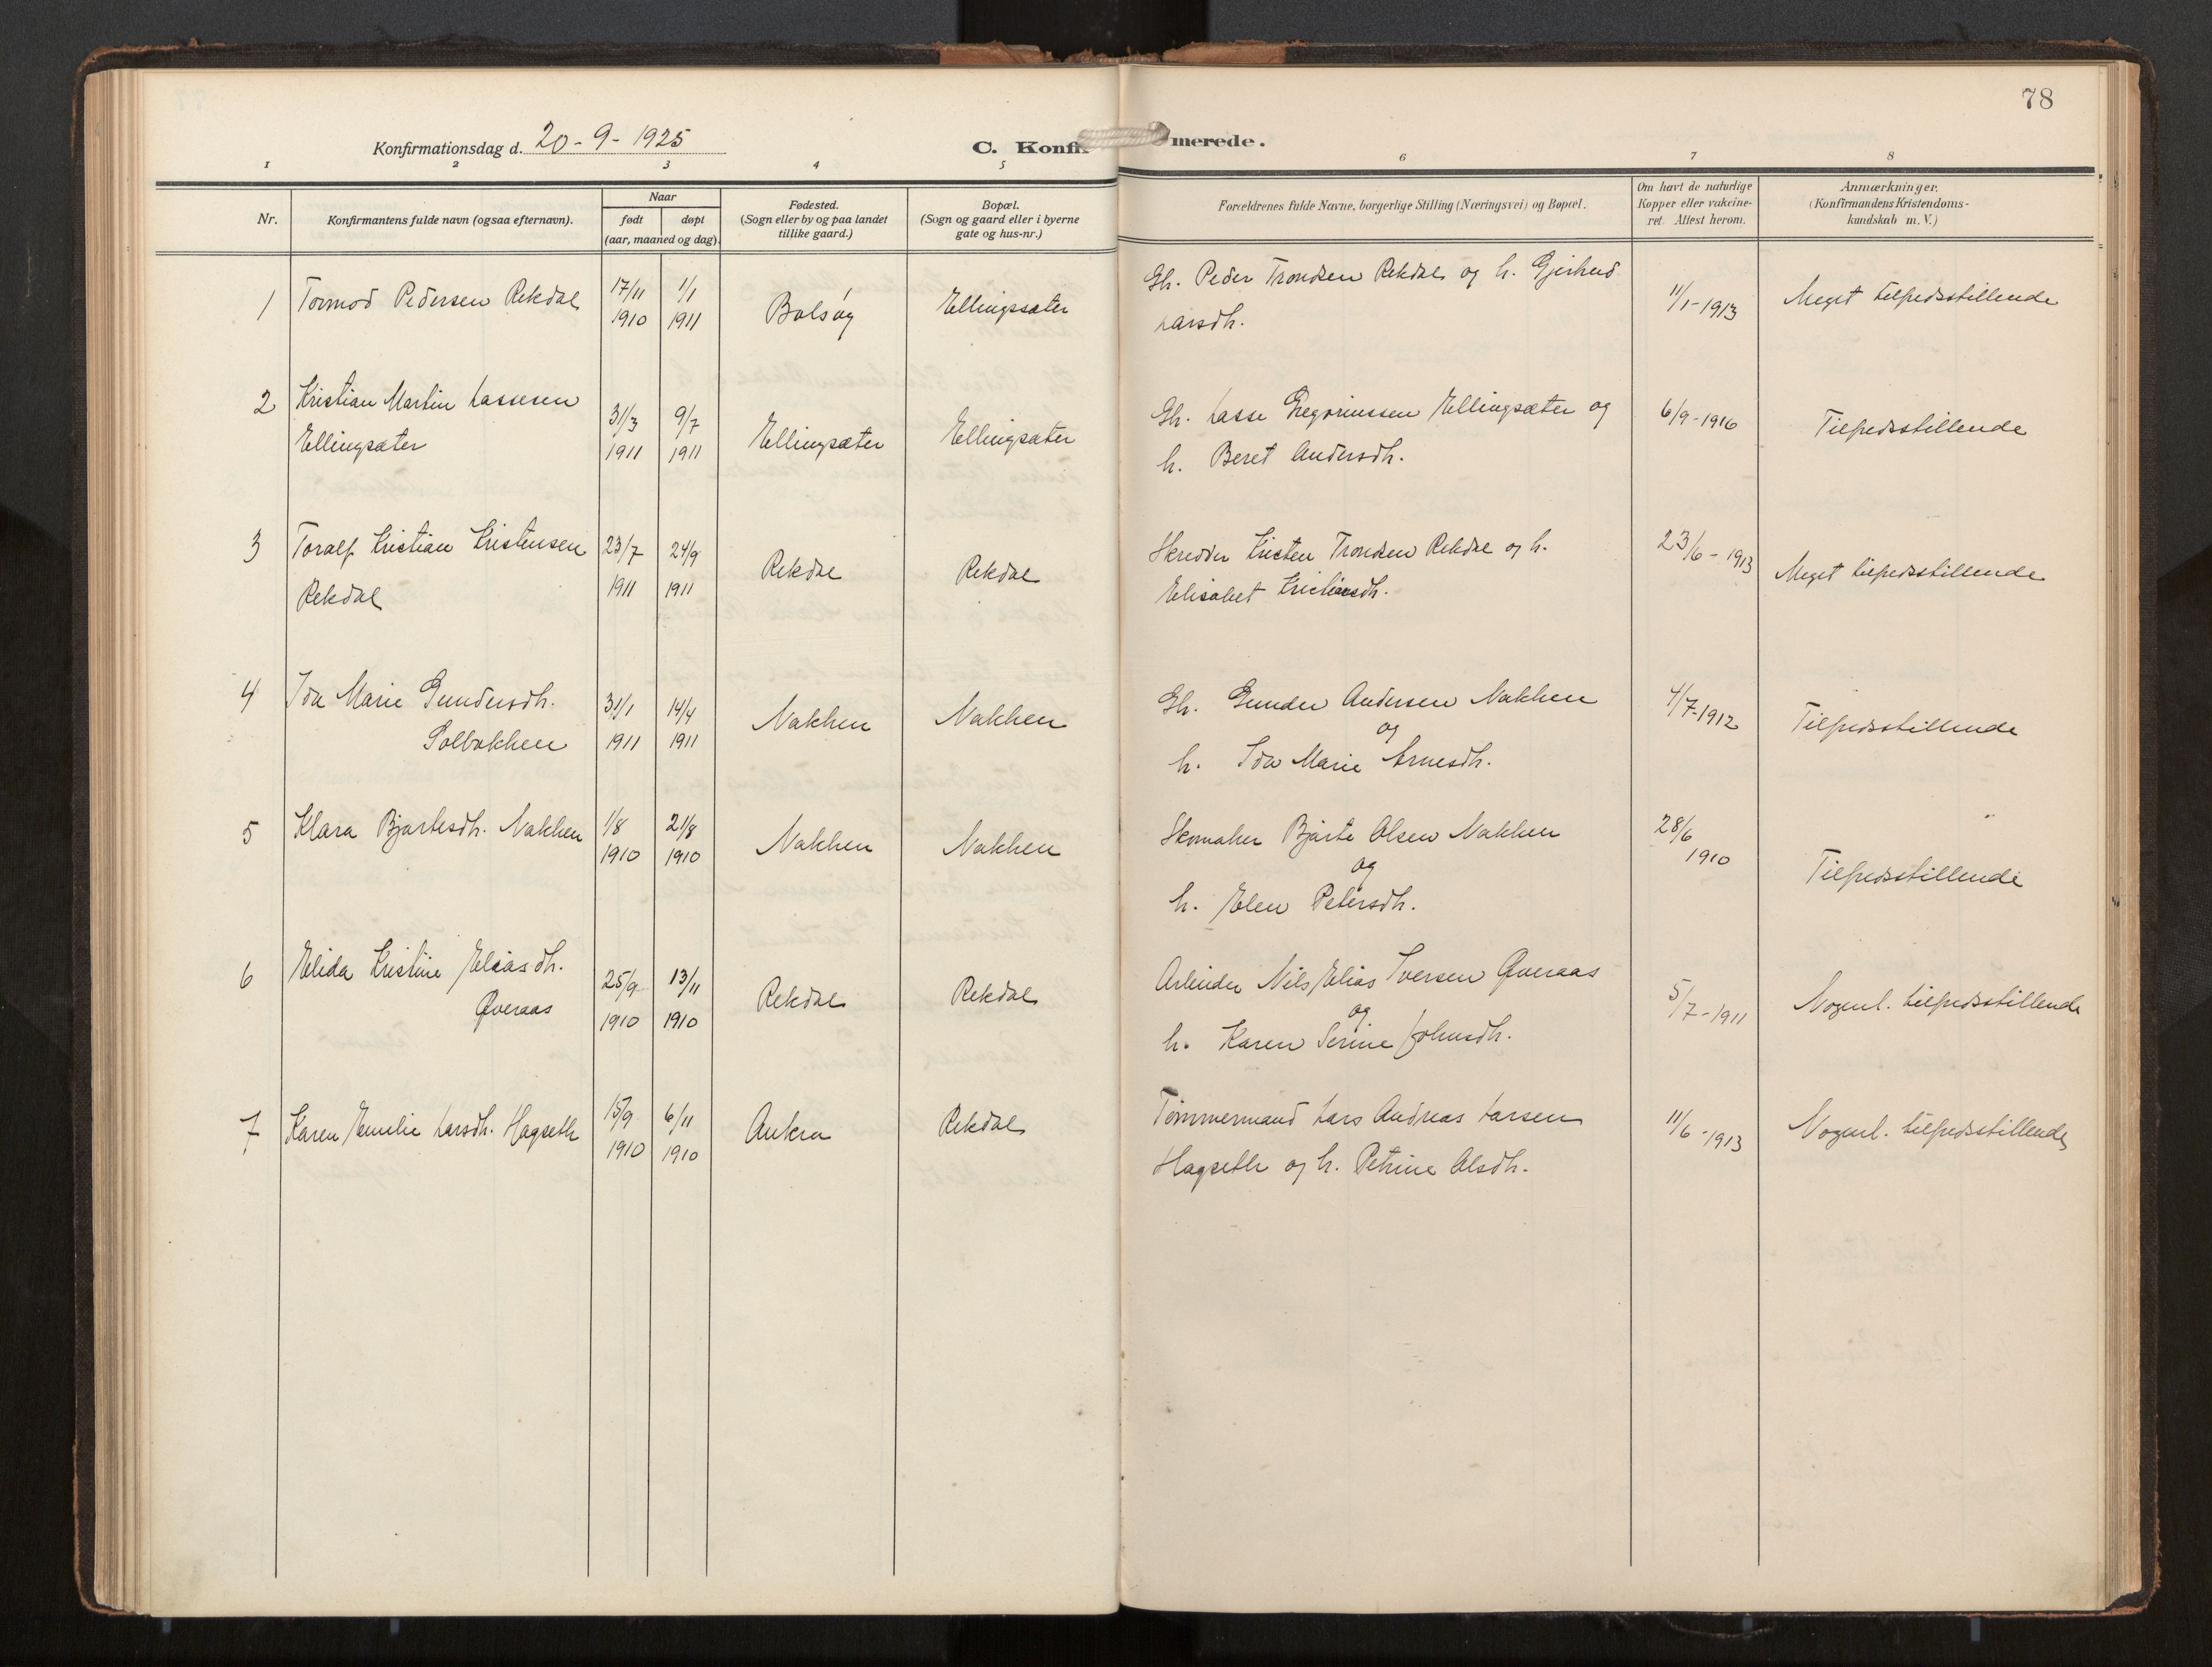 78
Konfirmationsdag d. 20 - 9 - 1925
C. Konfir merede.
1 2 3 4 5 6 7 8
Nr.
Konfirmantens fulde navn (ogsaa efternavn).
Naar
født døpt
(aar, maaned og dag).
Fødested.
(Sogn eller by og paa landet
tillike gaard.)
Bopæl.
(Sogn og gaard eller i byerne
gate og hus-nr.)
Forældrenes fulde Navne, borgerlige Stilling (Næringsvei) og Bopæl.
Om havt de naturlige
Kopper eller vakcine-
ret. Attest herom.
Anmærkninger.
(Konfirmandens Kristendoms-
kundskab m. V.)
1 Tormod Pedersen Rekdal
17/11 1910
1/1 1911
Bolsøy
Ellingssæter
Gb. Peder Trondsen Rekdal og h. Gjertrud
Larsdh.
11/1-1913
Meget tilfredsstillende
2 Kristian Martin Lassesen
Ellingsæter
31/3 1911
9/7 1911
Ellingsæter
Ellingsæter
Gb. Lasse Gregoriussen Ellingsæter og
h. Beret Andersdh.
6/9-1916
Tilfredsstillende
3 Toralf Kristian Kristensen
Rekdal
23/7 1911
24/9 1911
Rekdal
Rekdal
Skredder Kristen Trondsen Rekdal og h.
Elisabet Kristensdh.
23/6-1913
Meget tilfredsstillende
4 Ida Marie Gundersdh.
Solbakken
31/1 1911
14/4 1911
Nakken
Nakken
Gb. Gunder Andersen Nakken
og
h. Ida Marie Arnesdh.
4/7-1912
Tilfredsstillende
5 Klara Bjartesdh. Nakken
1/8 1910
21/8 1910
Nakken
Nakken
Skomaker Bjarte Olsen Nakken
og
h. Elen Petersdh.
28/6 1910
Tilfredsstillende
6 Elida Kristine Eliasdh.
Øveraas
25/9 1910
13/11 1910
Rekdal
Rekdal
Arbeider Nils Elias Iversen Øveraas
og
h. Karen Serine Johnsdh.
5/7-1911
Nogenl. tilfredsstillende
7 Karen Emelie Larsdh. Hagseth
15/9 1910
6/11 1910
Aukra
Rekdal
Tømmermand Lars Andreas Larsen
Hagseth og h. Petrine Olsdh.
11/6-1913
Nogenl. tilfredsstillende